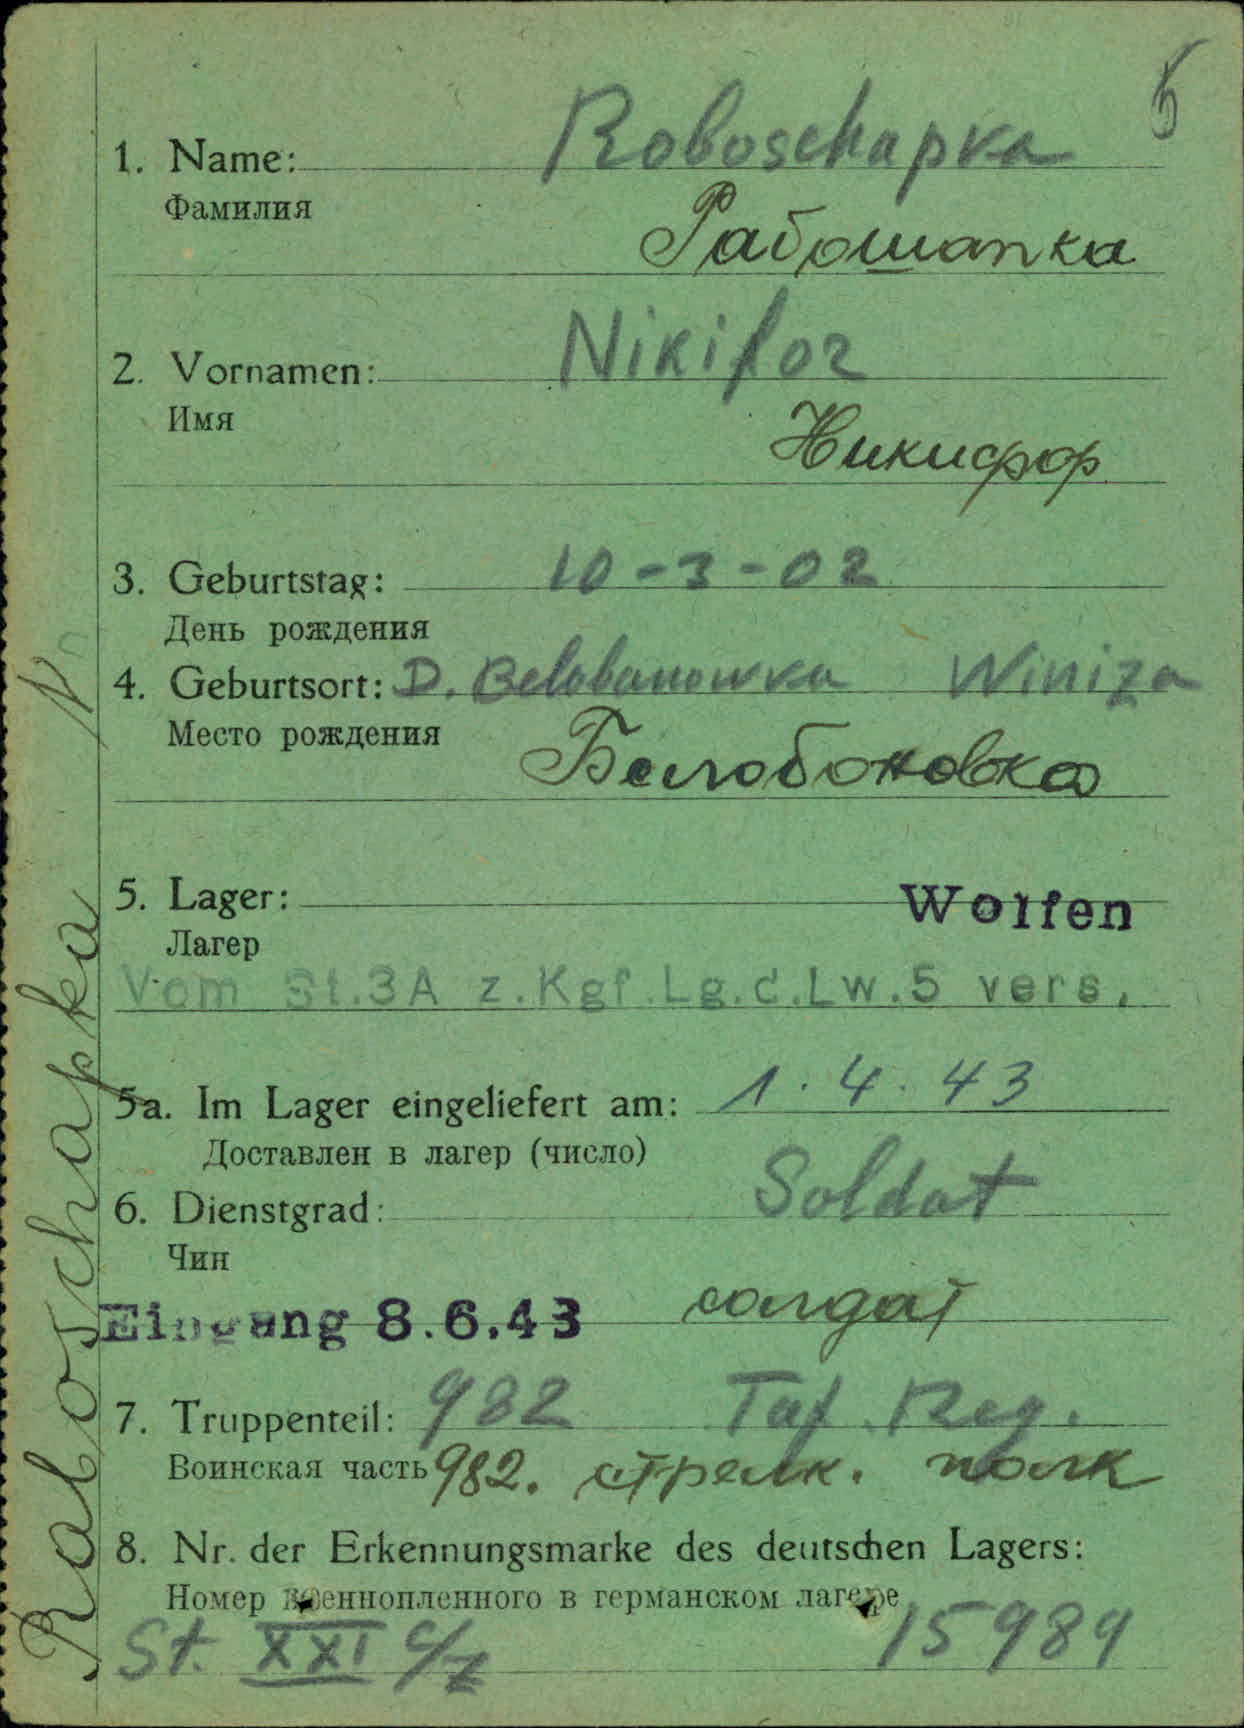 5
1. Name: Roboschapka
Фамилия
Рабошапка
2. Vornamen: Nikifor
Имя
Никифор
3. Geburtstag: 10-3-02
День рождения
4. Geburtsort: D. Belobanowka Winiza
Место рождения
Белобоновка
5. Lager: Wolfen
Лагер
Vom St.3A z.Kgf.Lg.d.Lw.5 vers.
5a. Im Lager eingeliefert am: 1.4.43
Доставлен в лагер (число)
6. Dienstgrad: Soldat
Чин
Eingang 8.6.43 солдат
7. Truppenteil: 982 Inf. Reg.
Воинская часть 982. стрелк. полк
8. Nr. der Erkennungsmarke des deutschen Lagers:
Номер военнопленного в германском лагере
St. XXI C/Z 15989
Raboschapka N